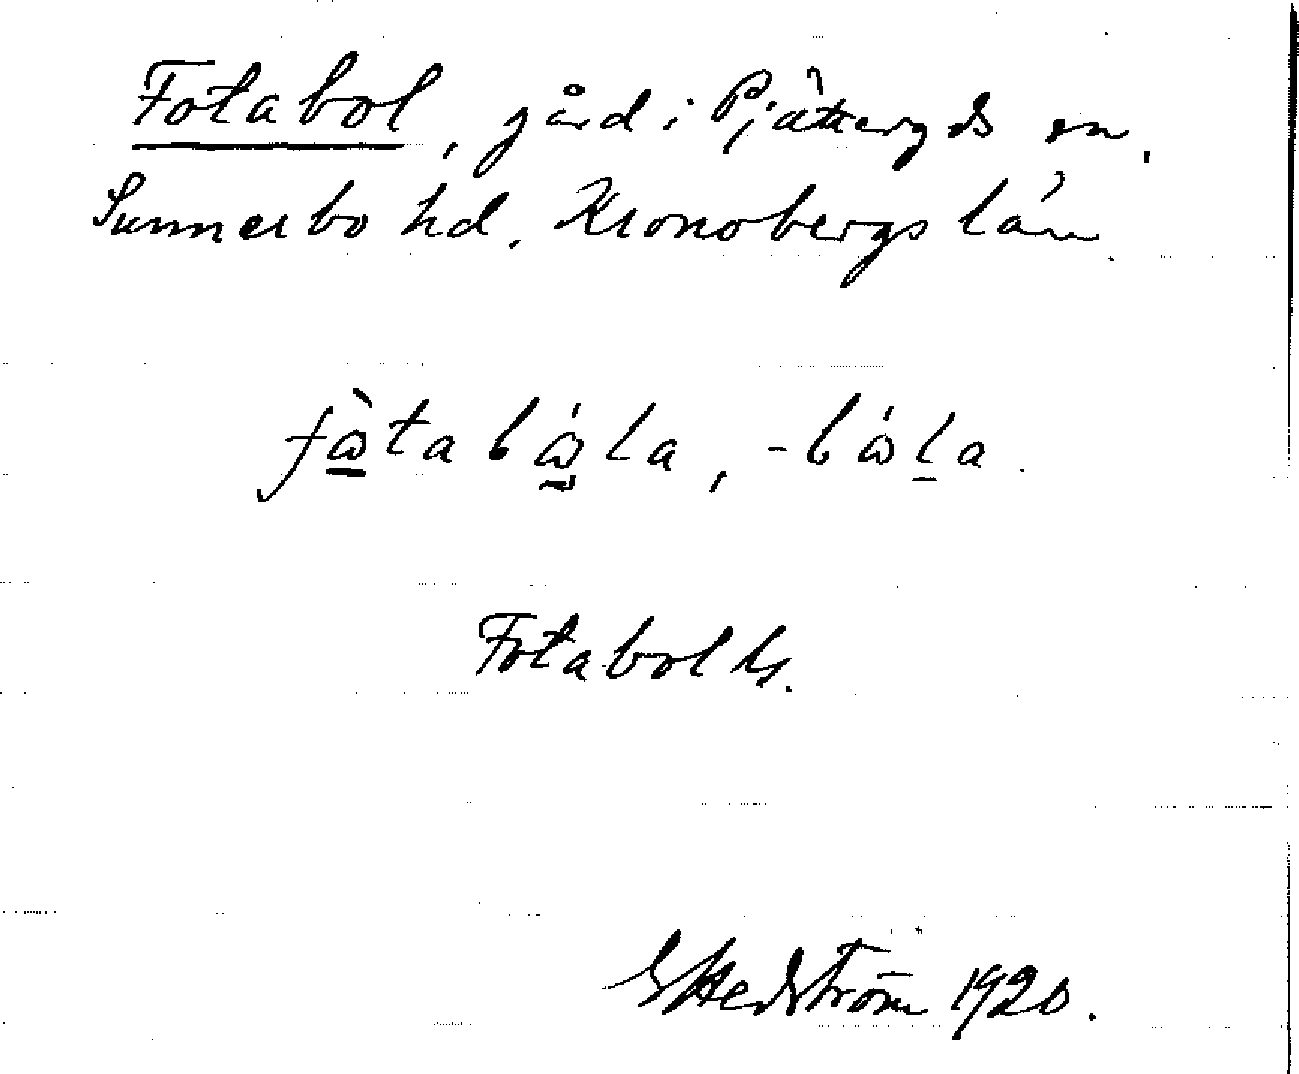 Fotabol, gård i Pjätteryds sn,
Sunnerbo hd. Kronobergs län.
fὼta bώla, -bώla.
Fotabol
GHedström 1920.